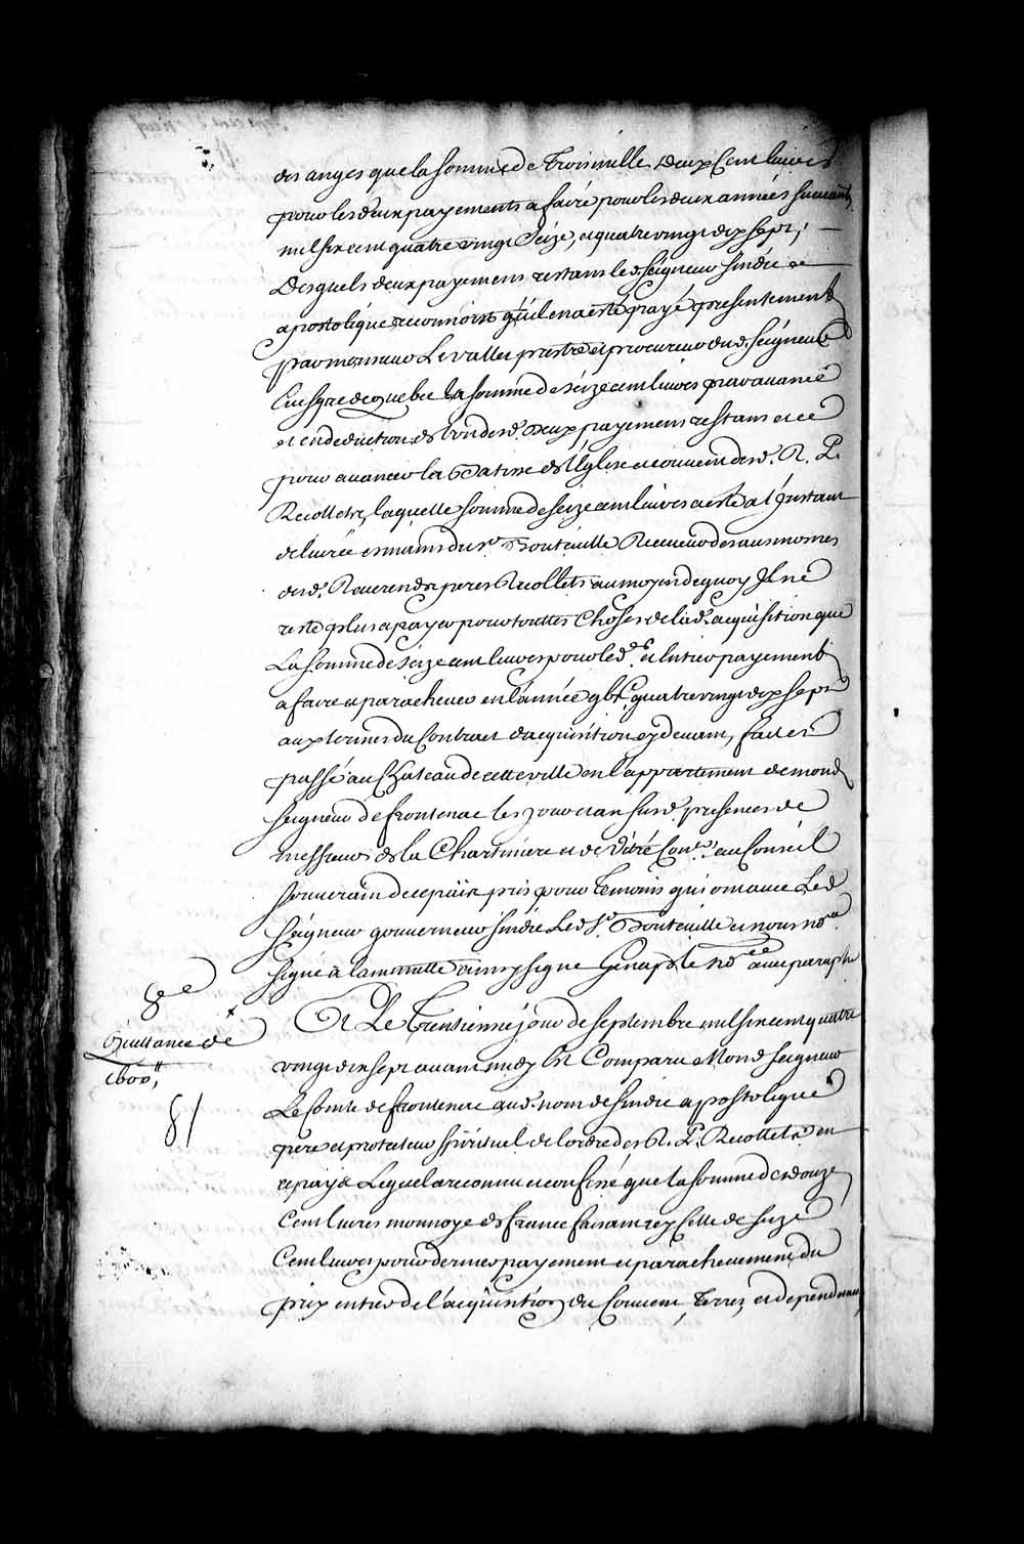 des anges que la somme de Trois mille deux Cent livres
pour les deux payements a faire pour les deux années suivants
mil six cent quatre vingt Seize, et quatre vingt dix sept;
Desquels deux payemens restans led. seigneur sindic
apostolique reconnoist qu'il en a esté payé presentement
par monsieur Levallet prestre et procureur dud. seigneur
Evesque de quebec la somme de seize cent livres par avance
et en deduction desd. deux payemens restans et ce
pour avancer la Batisse de l'Eglise et couvent desd. R. P.
Recollets, laquelle somme de seize cent livres a esté a l'Jnstant
delivrée es mains du Sr. Boutteuille Receveur des aumosnes
desd. Reverends peres Recollets au moyen de quoy Jl ne
reste plus a payer pour touttes Choses de lad. acquisition que
La somme de seize cent livres pour led. dernier payement
a faire et parachever en l'année gbc. quatre vingt dix sept
aux termes du Contract d'acquisition cy devant, fait et
passé au Chateau de cette ville en l'appartement de mond.
seigneur de frontenac les jour et an susd. presences de
messieurs de la Chartiniere et de Vitré Conrs. au Conseil
souverain de ce païs pris pour Temoins qui ont avec Led.
seigneur gouverneur sindic Led. Sr. Boutteuille et nous nore.
signé a la minutte ainsy signé Genaple nore avec paraphe
8e
Quittance de
1600lt
81
Et Le Trentieme jour de septembre mil six cent quatre
vingt dix sept avant midy Est Comparu Mond. seigneur
Le Comte de frontenac aud. nom de sindic apostolique
pere et protecteur spirituel de l'ordre des R. P. Recollets en
ce pays Lequel a reconnu et confessé que la somme de douze
Cent livres monnoye de france faisant icy Celle de seize
Cent livres pour dernier payement et parachevement du
prix entier de l'acquisition du Couvent, Terres, et dependances